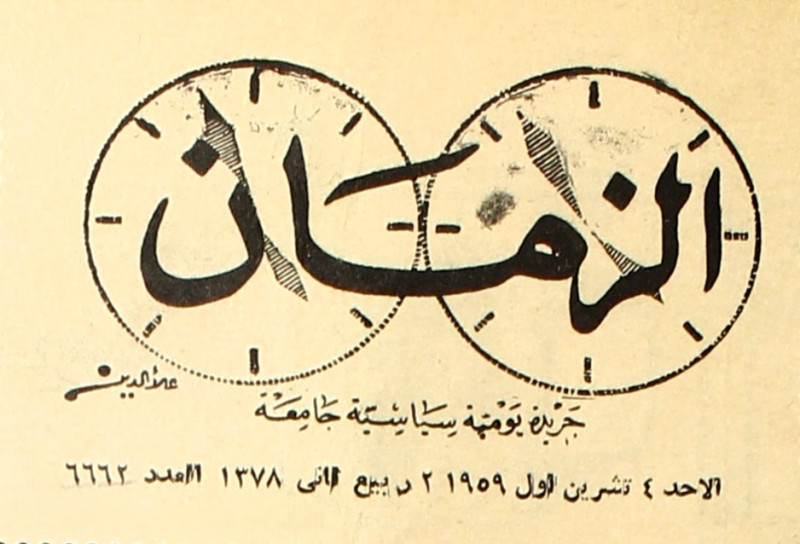 الزمان
علاء الدين
جريدة يومية سياسية جامعة
الاحد ٤ تشرين اول ١٩٥٩ ٢ ربيع الثاني ١٣٧٨ العدد ٦٦٦٢